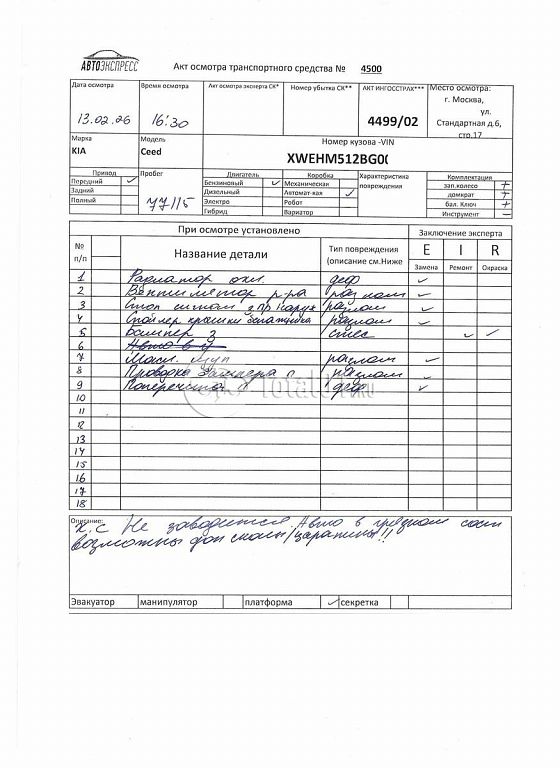 АВТОЭКСПРЕСС
Акт осмотра транспортного средства № 4500
Дата осмотра Время осмотра Акт осмотра эксперта СК* Номер убытка СК** АКТ ИНГОССТРАХ*** Место осмотра:
г. Москва,
ул.
13.02.26 16:30 4499/02 Стандартная д.6,
стр.17
Марка Модель Номер кузова -VIN
KIA Ceed XWEHM512BG0(
Привод Пробег Двигатель Коробка Характеристика Комплектация
Передний ✓ Бензиновый ✓ Механическая повреждения зап.колесо +
Задний Дизельный Автомат-кая ✓ домкрат +
Полный 77115 Электро Робот бал. Ключ +
Гибрид Вариатор Инструмент −
При осмотре установлено Заключение эксперта
№ Название детали Тип повреждения E I R
п/п (описание см.Ниже Замена Ремонт Окраска
1 Радиатор охл. деф ✓
2 Вентилятор р-ра разлом ✓
3 Стоп сигнал з.пр наруж разлом ✓
4 Спойлер крышки багажника разлом ✓
5 Бампер з ✓ ✓
6 Авто в у
7 Маск. разлом ✓
8 Проводка бампера п разлом ✓
9 Поперечина п деф ✓
10
11
12
13
14
15
16
17
18
Описание:
К.С Не заводится. Авто в грязном сост
возможны доп сколы/царапины!!
Эвакуатор манипулятор платформа ✓ секретка